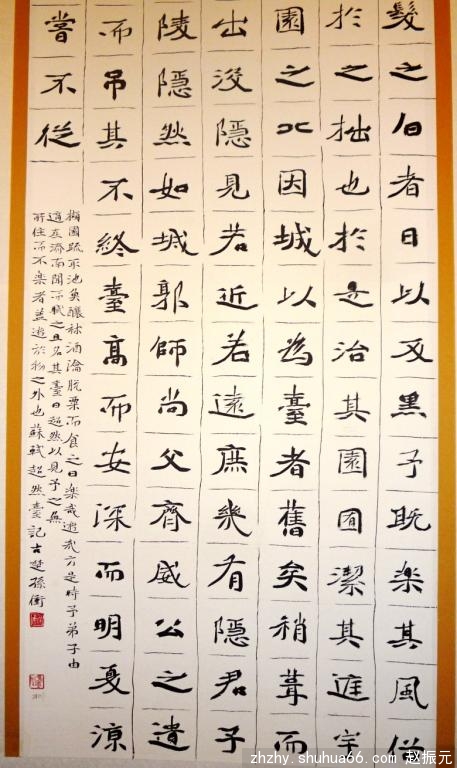 髮之白者日以反黑予既楽其風俗
於之拙也於是治其園囿潔其庭宇
園之北因城以為臺者舊矣稍葺而
出没隱見若近若遠庶幾有隱君子
陵隱然如城郭師尚父齊威公之遺
而吊其不終臺高而安深而明夏涼
嘗不從
擷園蔬取池魚釀秫酒瀹脫粟而食之曰楽哉遊哉方是時予弟子由
適在濟南聞而賦之且名其臺曰超然以見予之無
所住而不楽者蓋遊於物之外也蘇軾超然臺記古楚孫衡
zhzhy.shuhua66.com 赵振元